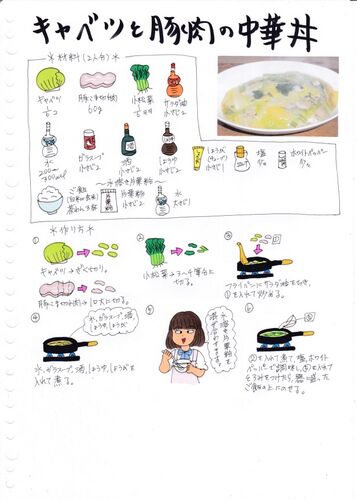 キャベツと豚肉の中華丼
＊材料(2人分)＊
キャベツ
豚こま切れ肉
60g
小松菜
サラダ油
小さじ2
水
200cc〜
300cc
ガラスープ
小さじ2
酒
小さじ2
しょうゆ
小さじ2
しょうが
(チューブ)
小さじ1
塩
少々
ホワイトペッパー
少々
ご飯
〜水溶き片栗粉〜
片栗粉
小さじ2
水
大さじ1
＊作り方＊
①
キャベツ→ざく切り。
豚こま切れ肉→一口大に切る。
②
小松菜→3〜4等分に
せつる。
③
フライパンにサラダ油をひき、
①を入れて炒める。
④
水、ガラスープ、酒、
しょうゆ、しょうが
水、ガラスープ、酒、しょうゆ、しょうがを
入れて煮る。
⑤
水溶き片栗粉を
混ぜ合わせます。
⑥
②を入れて煮て、塩、ホワイト
ペッパーで調味し、⑤を入れて
とろみをつけたら、器に盛った
ご飯の上にのせる。